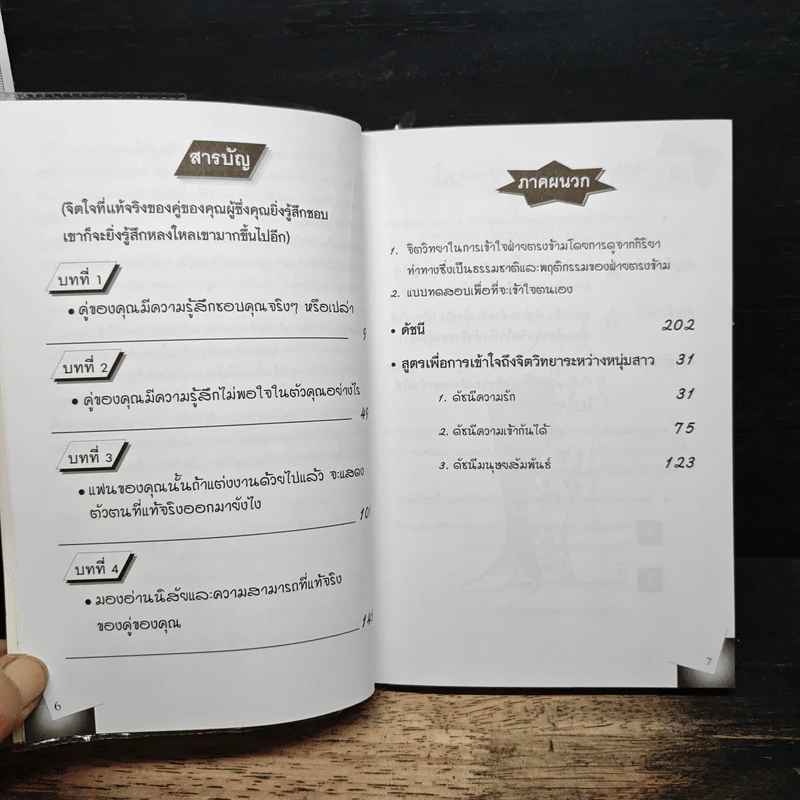 สารบัญ
(จิตใจที่แท้จริงของคู่ของคุณผู้ซึ่งคุณยิ่งรู้สึกชอบ
เขาก็จะยิ่งรู้สึกหลงใหลเขามากขึ้นไปอีก)
บทที่ 1
• คู่ของคุณมีความรู้สึกชอบคุณจริงๆ หรือเปล่า
9
บทที่ 2
• คู่ของคุณมีความรู้สึกไม่พอใจในตัวคุณอย่างไร
49
บทที่ 3
• แฟนของคุณนั้นถ้าแต่งงานด้วยไปแล้ว จะแสดง
ตัวตนที่แท้จริงออกมายังไง
บทที่ 4
• มองอ่านนิสัยและความสามารถที่แท้จริง
ของคู่ของคุณ
6
ภาคผนวก
1. จิตวิทยาในการเข้าใจฝ่ายตรงข้ามโดยการดูจากกิริยา
ท่าทางซึ่งเป็นธรรมชาติและพฤติกรรมของฝ่ายตรงข้าม
2. แบบทดสอบเพื่อที่จะเข้าใจตนเอง
• ดัชนี 202
• สูตรเพื่อการเข้าใจถึงจิตวิทยาระหว่างหนุ่มสาว 31
1. ดัชนีความรัก 31
2. ดัชนีความเข้ากันได้ 75
3. ดัชนีมนุษยสัมพันธ์ 123
7